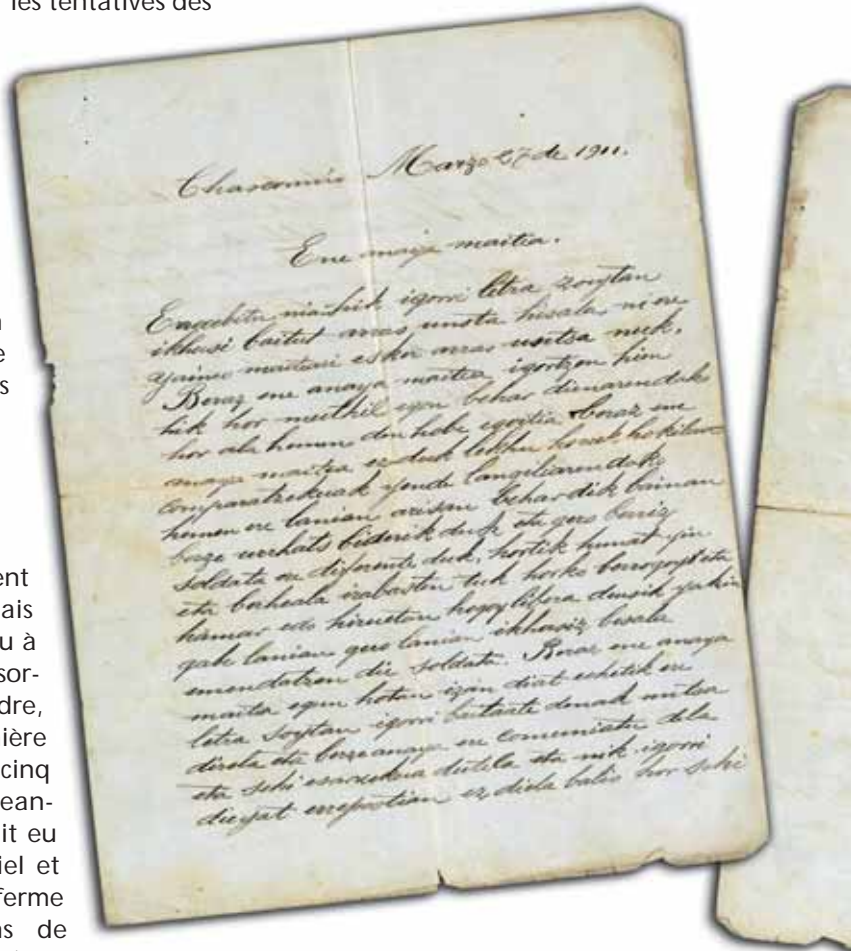 les tentatives des
e
s
ent
ais
u à
sor-
dre,
ière
cinq
ean-
it eu
iel et
ferme
ns de
Marzo 27 de 1911.
Ene anaya maitea.
igorri letra zoiytan
ikhusi baitut arras unsta hizala ni ere
esker arras untsa nuk.
Beraz ene anaya maitea igortzen hien
hik hor muthil egon behar dienarendako
hor ala hemen dun hobe egoitia beraz ene
anaya maitea ez duk lekhu horek
comparatzekuak yende langiliarendako
hemen ere lanian arizan behar dik bainan
berze urrhats biderik duk eta gero berriz
soldata ere diferente duk, hortik hunat yin
eta berheala irabazten tuk horko
hamar edo hiruetan hogoy libera yakin
gabe lanian gero lanian ikhasiz bezala
emendatzen die soldata. Beraz ene anaya
maitea egun hotan izan diat echetik ere
letra igorri baitaate denak untsa
direla eta berze anaya ere comuniatu dela
eta sehi dutela eta nik igorri
dieyat errepostian ez diela balio hor sehi